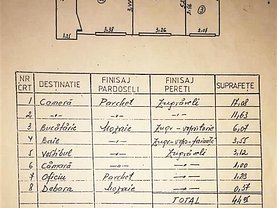 3.38
3.26
3
NR CRT DESTINATIE FINISAJ PARDOSELI FINISAJ PERETI SUPRAFEȚE
1 Cameră Parchet Zugrăveli 17,08
2 -"- -"- -"- 11,63
3 Bucătărie Mozaic Zugr-vopsitorie 6,07
4 Baie -"- Zugr-vop-faianță 3,55
5 Vestibul -"- Zugrăveli 3,12
6 Cămară -"- -"- 1,00
7 Oficiu Parchet -"-
8 Debara Mozaic -"- 0,37
TOTAL